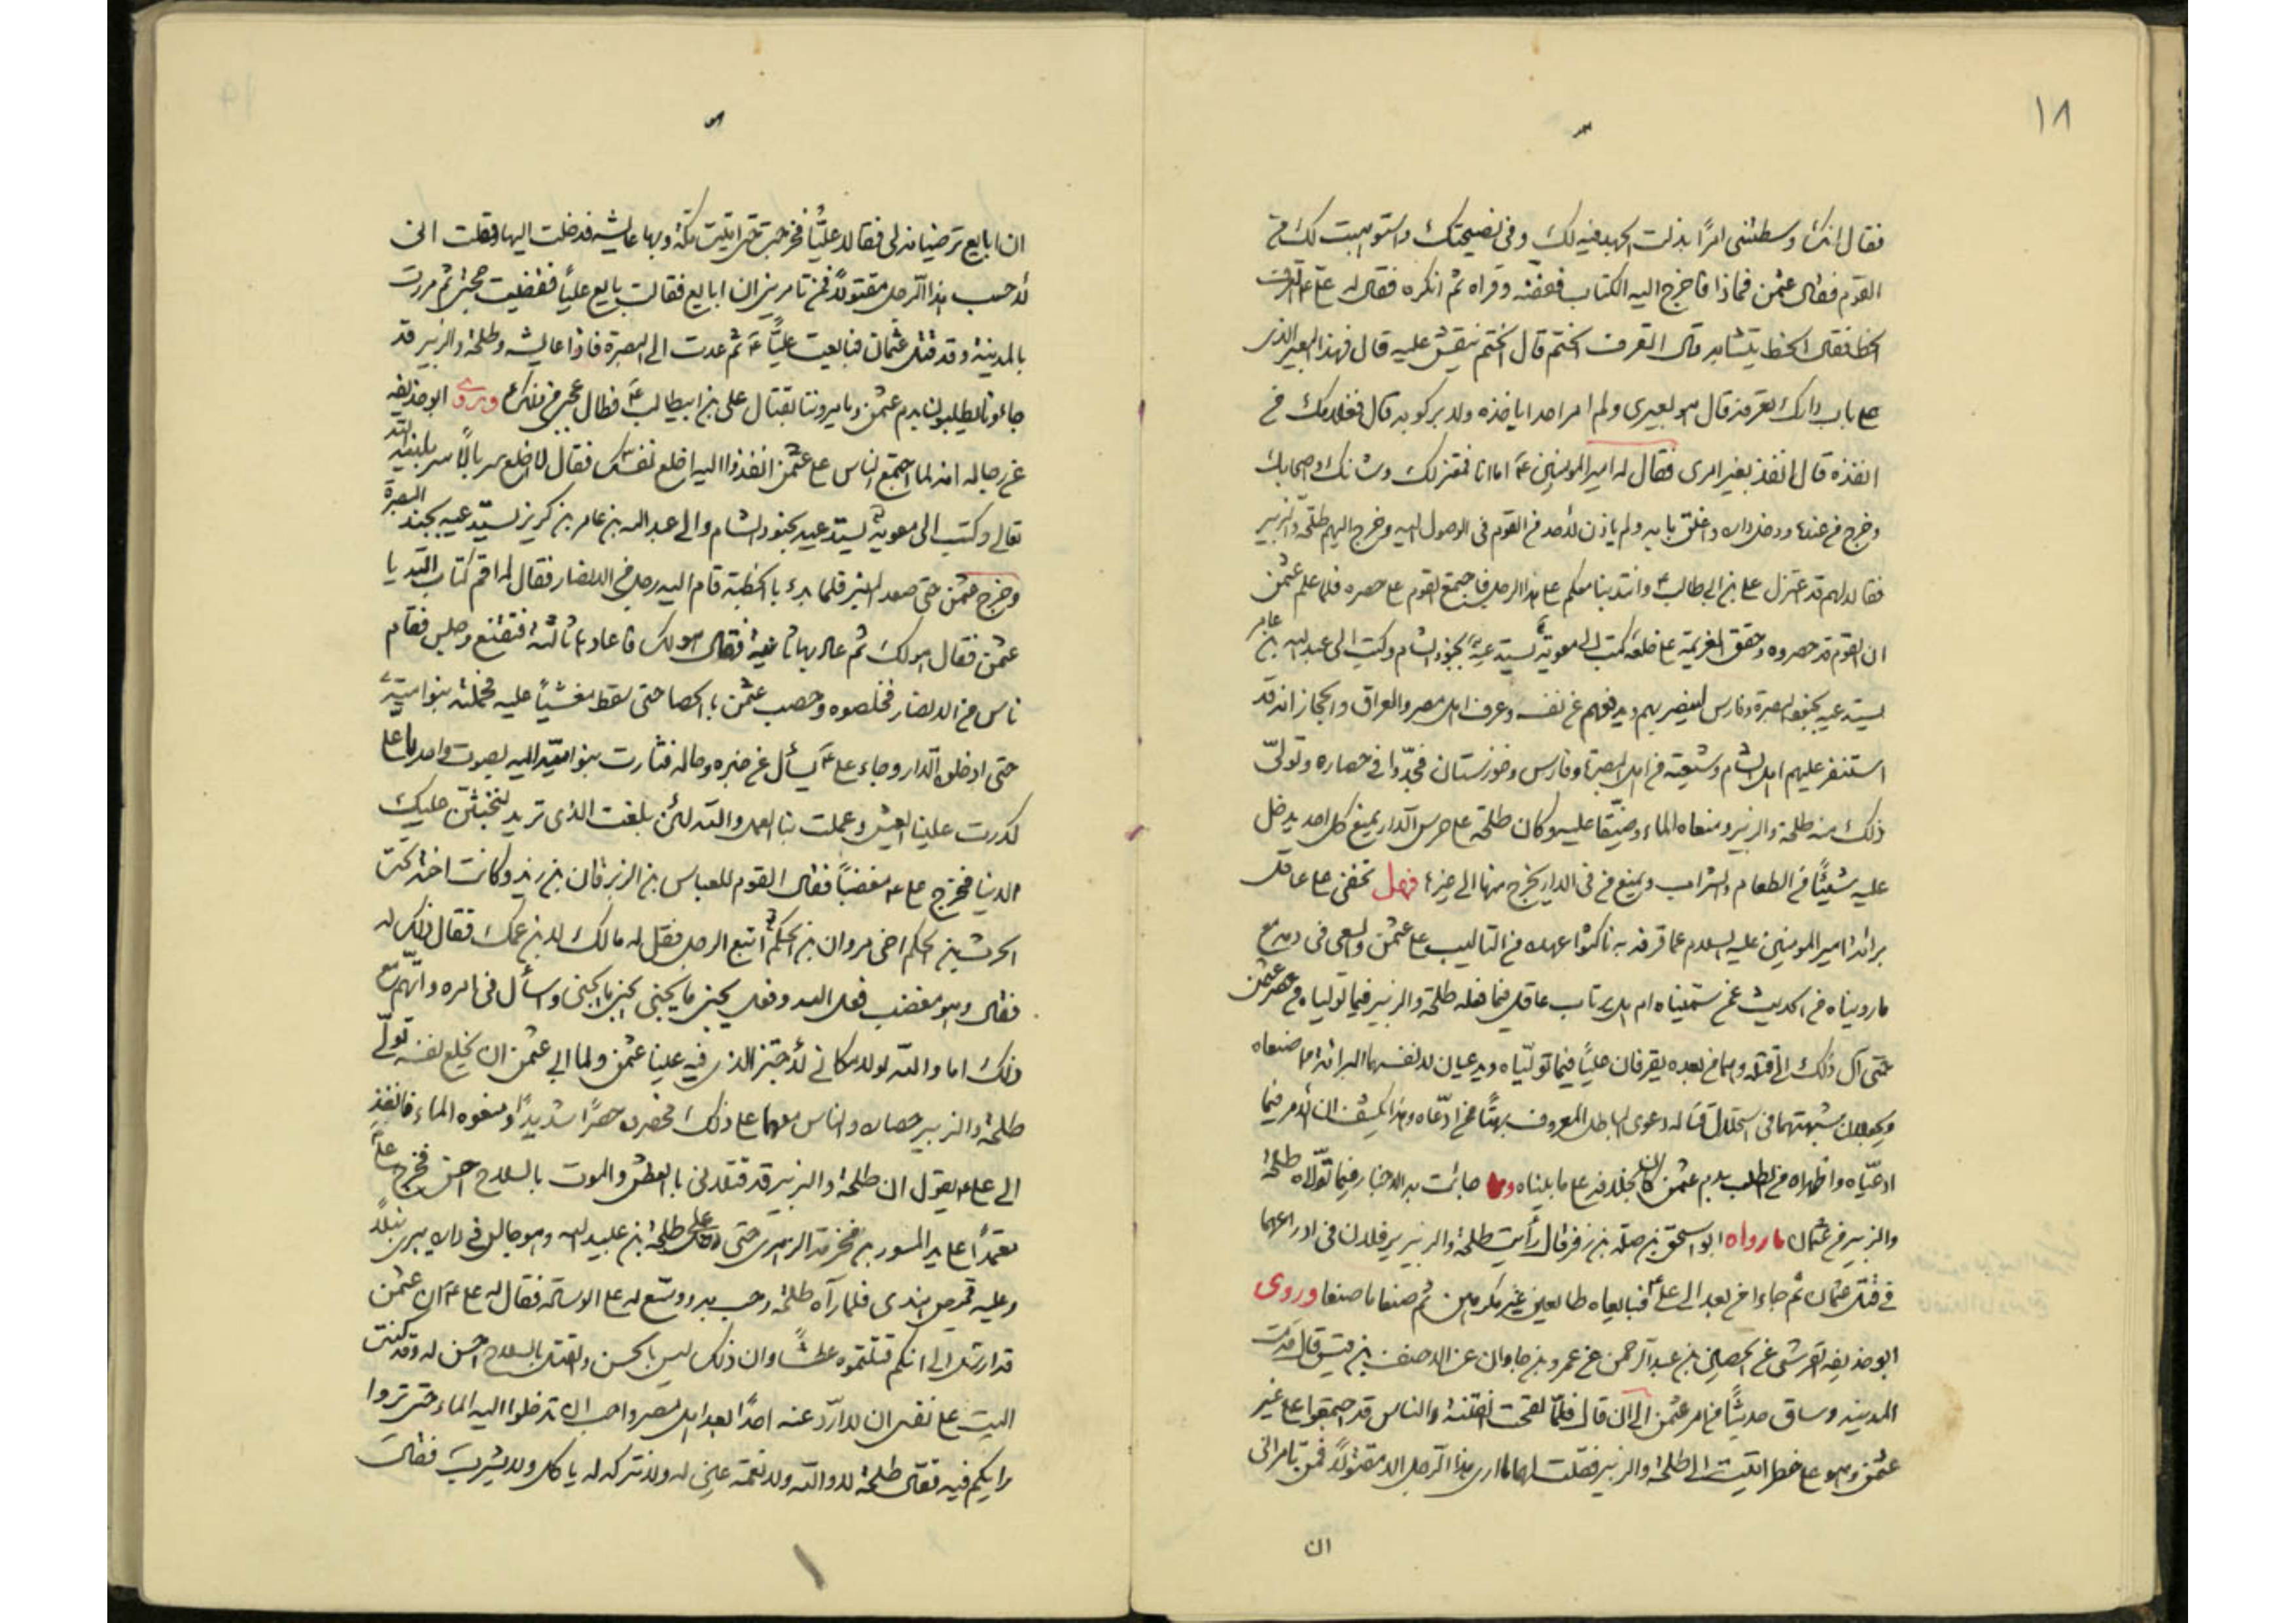 ١٨
فقال انك وسطتنى امرًا بذلت الجهد فيه لك وفى نصيحتك واستوهبت لك من
القوم فقال عثمن فماذا فاخرج اليه الكتاب ففضّه وقراه ثم انكره فقال له على ع اتعرف
الخط فقال الخط يتشابه قال اتعرف الختم قال الختم ينقش عليه قال فهذا البعير الذى
على باب دارك تعرفه قال هو بعيرى ولم امر احدا ياخذه ولا يركوبه قال فغلامك من
انفذه قال انفذ بغير امرى فقال له امير المومنين ع اما انا فمعتزلك وشانك واصحابك
وخرج من عنده ودخل داره واغلق بابه ولم ياذن لاحد من القوم فى الوصول اليه وخرج اليهم طلحة والزبير
فقالا لهم قد اعتزل على بن ابى طالب ع وانتدبنا معكم على هذا الرجل فاجتمع القوم على حصره فلما علم عثمن
ان القوم قد حصروه وحقق العزيمة على خلعه كتب الى معوية يستدعيه بجنود الشام وكتب الى عبد الله بن عامر
يستدعيه بجنود البصرة وفارس لينصر بهم ويدفعهم عن نفسه وعرف اهل مصر والعراق والحجاز انه قد
استنفر عليهم اهل الشام وشيعته من اهل البصرة وفارس وخوزستان فجدّوا فى حصاره وتولّى
ذلك منه طلحة والزبير ومنعاه الماء وضيّقا عليه وكان طلحة على حرس الدار يمنع كل احد يدخل
عليه شيئًا من الطعام والشراب ويمنع من فى الدار يخرج منها الى غيرها فهل تخفى على عاقل
برائة امير المومنين عليه السلام مما قرفه به ناكثوا عهده من التاليب على عثمن والسعى فى دمه مع
ما رويناه من الحديث عمن سميناه ام هل يرتاب عاقل فيما فعله طلحة والزبير فيما تولياه من حصر عثمن
حتى آل ذلك الى قتله وهما من بعده يقرفان عليًا فيما تولّياه ويدعيان لانفسهما البرائة مما صنعاه
ويجعلان شبهتهما فى استحلال قتاله دعوى الباطل المعروف بهتًا ممن ادّعاه وهذا يكشف ان الامر فيما
ادعيّاه واظهراه من الطلب بدم عثمن كان بخلافه على ما بيناه وما جائت به الاخبار فيما تولّاه طلحة
والزبير من عثمان ما رواه ابو اسحق بن صلة بن زفر قال رأيت طلحة والزبير يرفلان فى ادراعهما
فى قتل عثمان ثم جاءا من بعد الى على ع فبايعاه طايعين غير مكرهين ثم صنعا ما صنعا وروى
ابو حذيفه القرشى عن الحصين بن عبد الرحمن عن عمرو بن جاوان عن الاحنف بن قيس قال قدمت
المدينه وساق حديثًا من امر عثمن الى ان قال فلمّا لقحت الفتنة والناس قد اجتمعوا على غير
عثمن وهو على خطر اتيت الى طلحة والزبير فقلت لهما ما ارى هذا الرجل الا مقتولًا فمن تامرانى
ان
ان ابايع ترضيانه لى فقالا عليًّا فخرجت حتى اتيت مكة وبها عايشه فدخلت اليها وقلت انى
لاحسب هذا الرجل مقتولًا فمن تامرين ان ابايع فقالت بايع عليًا فقضيت حجى ثم مررت
بالمدينة وقد قتل عثمان فبايعت عليًّا ع ثم عدت الى البصرة فاذا عايشه وطلحة والزبير قد
جاءونا يطلبون بدم عثمن ويامروننا بقتال على بن ابيطالب ع فطال عجبى من ذلك وروى ابو حذيفه
عن رجاله انه لما اجتمع الناس على عثمن انفذوا اليه اخلع نفسك فقال لا اخلع سربالًا سربلنيه الله
تعالى وكتب الى معوية يستدعيه بجنود الشام والى عبد الله بن عامر بن كريز يستدعيه بجند البصرة
وخرج عثمن حتى صعد المنبر فلما بدء بالخطبة قام اليه رجل من الانصار فقال له اقم كتاب الله يا
عثمن فقال هو لك ثم عاد بها ثانية فقال هو لك فاعادها ثالثة فتقنع وجلس فقام
ناس من الانصار فخلصوه وحصب عثمن بالحصا حتى سقط مغشيًا عليه فحملته بنو امية
حتى ادخلوه الدار وجاء على ع يسأل عن خبره وحاله فثارت بنو امية اليه بصوت واحد يا على
كدرت علينا العيش وعملت بنا العمل والله لئن بلغت الذى تريد لنخبثن عليك
الدنيا فخرج على ع مغضبًا فقال القوم للعباس بن الزبرقان بن زيد وكانت اخته تحت
الحرث بن الحكم اخى مروان بن الحكم اتبع الرجل فقل له مالك لابن عمك فقال ذلك له
فقال وهو مغضب فعل الله وفعل يجنى ما يجنى واسأل فى امره واتّهم مع
ذلك اما والله لولا مكانى لاجتز الذى فيه علينا عثمن ولما ابى عثمن ان يخلع نفسه تولّى
طلحة والزبير حصاره والناس معهما على ذلك فحصره حصرًا شديدًا ومنعوه الماء فانفذ
الى على ع يقول ان طلحة والزبير قد قتلانى بالعطش والموت بالسلاح احسن فخرج على ع
معتمدًا على يد المسور بن مخرمة الزهرى حتى دخل على طلحة بن عبيد الله وهو جالس فى داره يبرى نبلًا
وعليه قميص هندى فلما رآه طلحة رحب به ووسّع له على الوسادة فقال له على ع ان عثمن
قد ارسل الى انكم قتلتموه عطشًا وان ذلك ليس بالحسن والقتل بالسلاح احسن له وقد كنت
اليت على نفسى ان لا اردّ عنه احدًا بعد اهل مصر واحب ان تدخلوا اليه الماء حتى تروا
رايكم فيه فقال طلحة لا والله ولا نعمة عين له ولا نتركه له ياكل ولا يشرب فقال